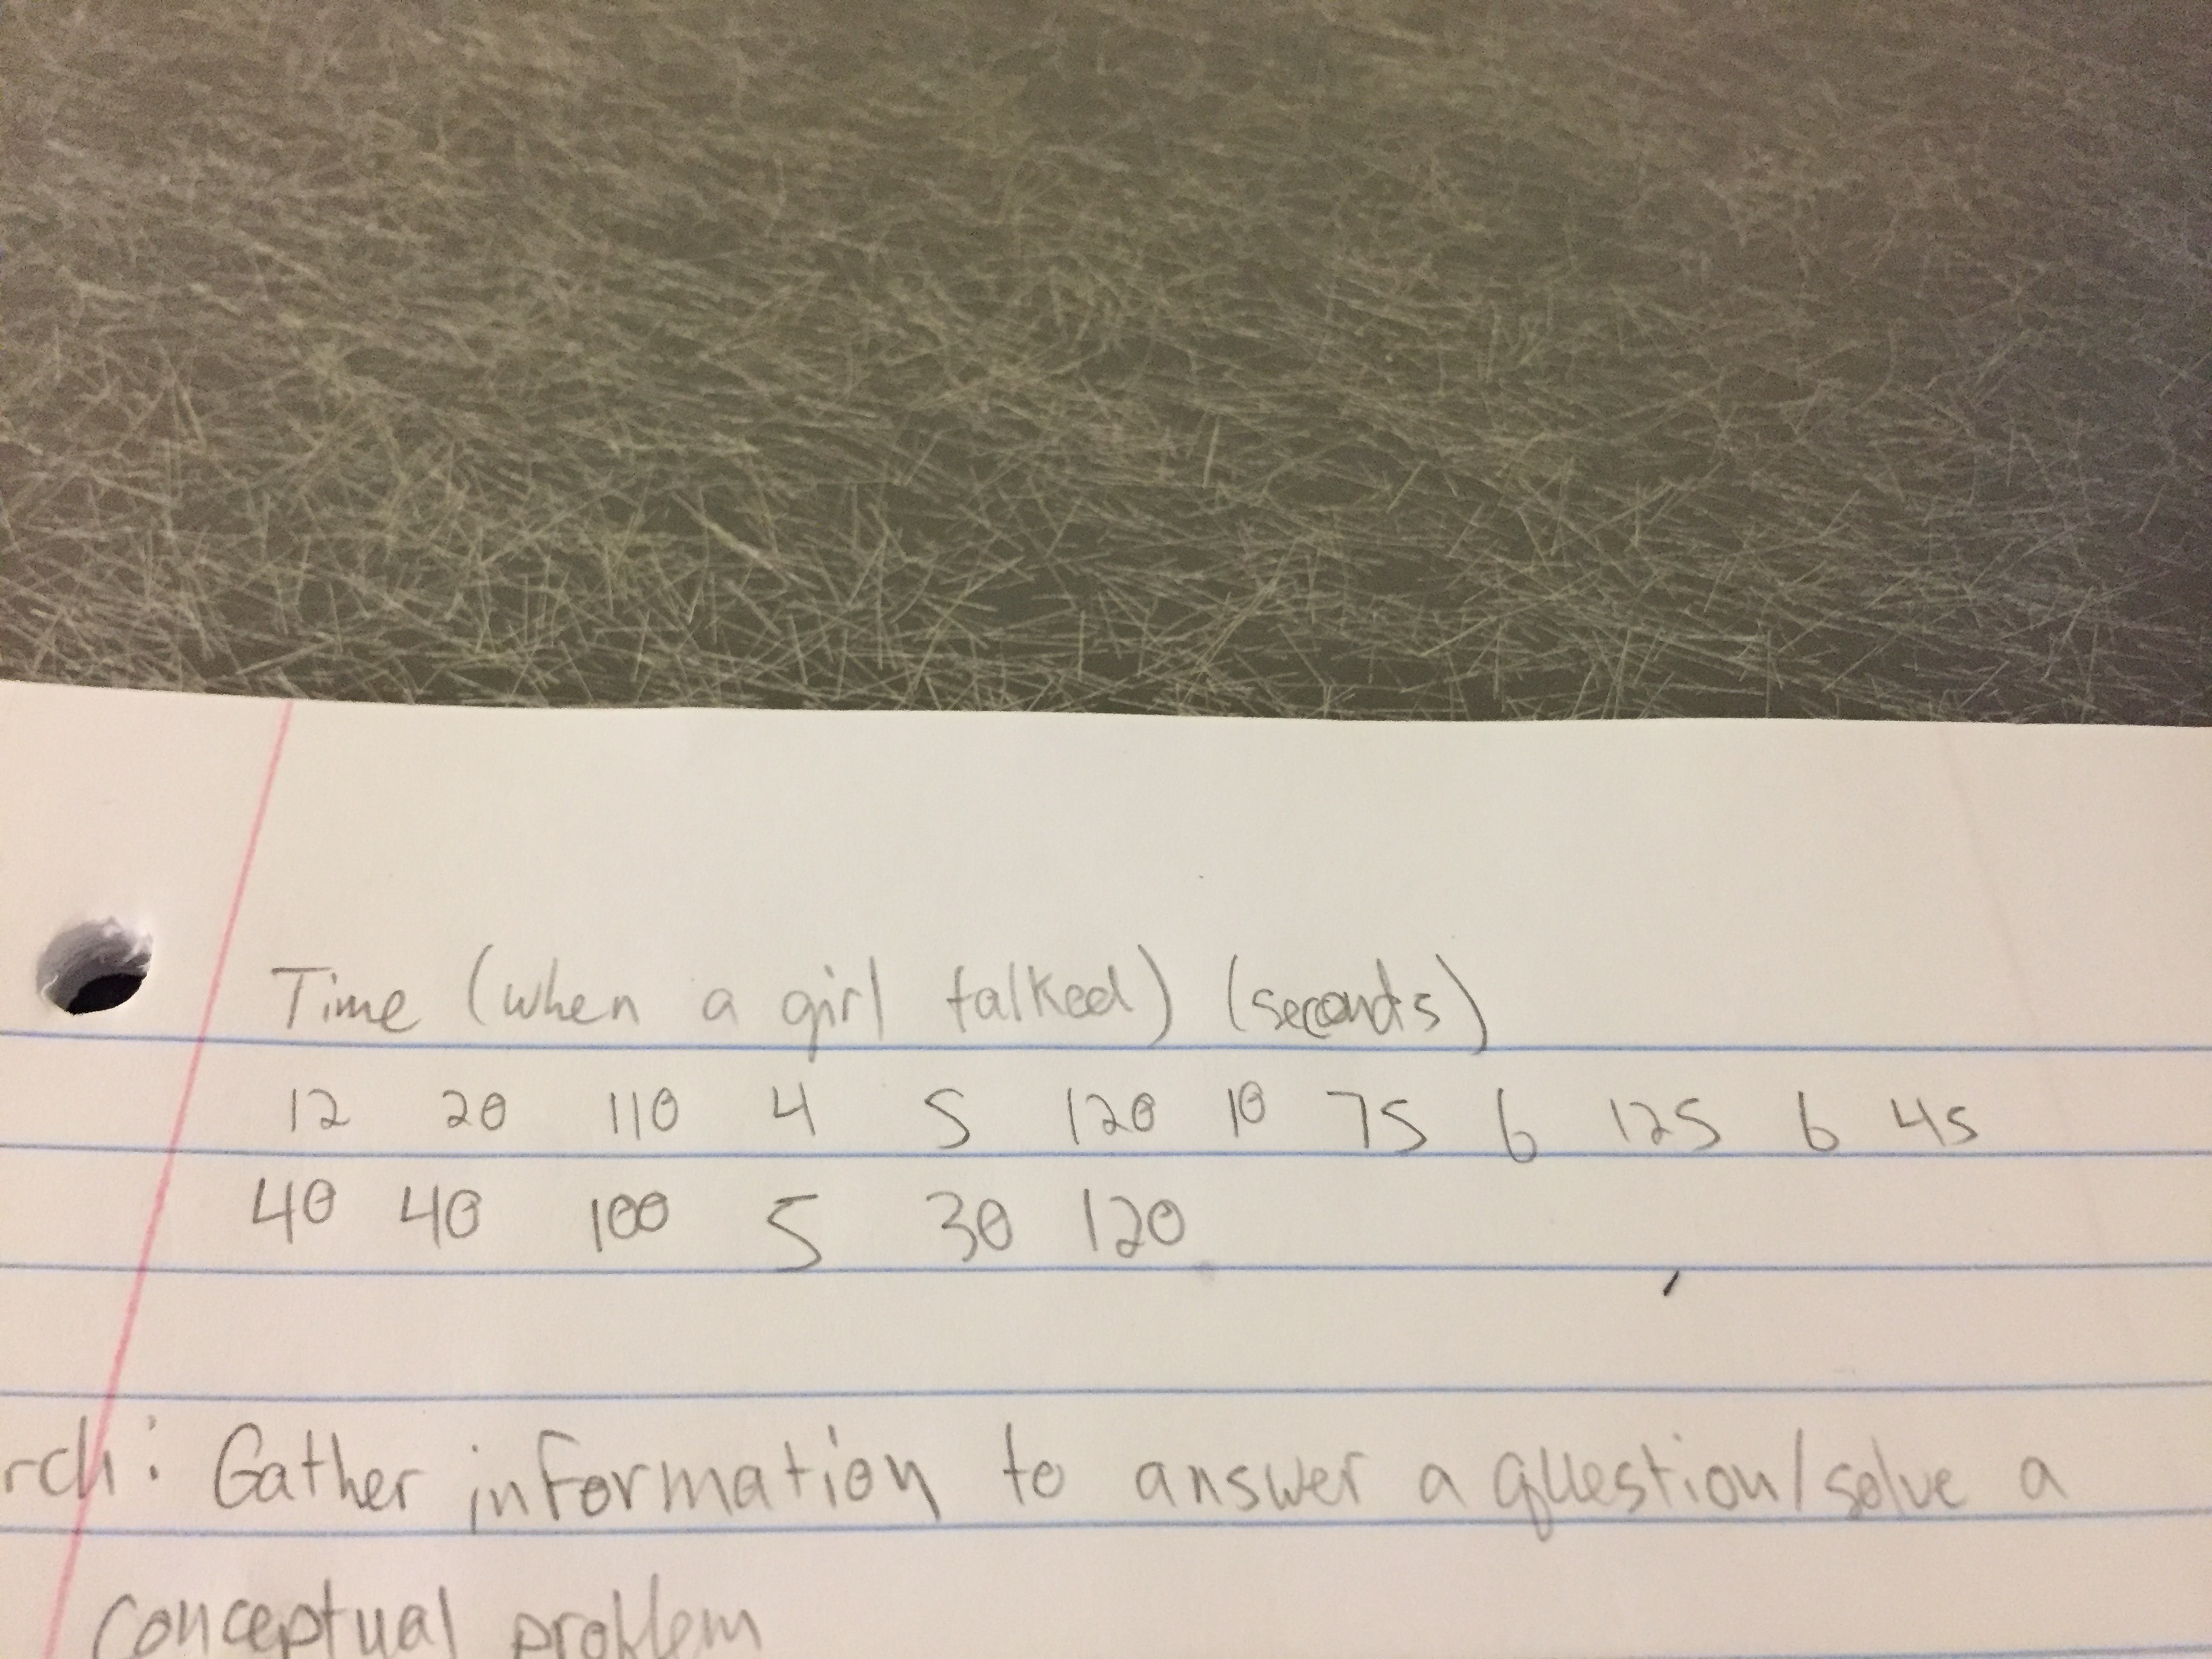 Time (when a girl talked) (seconds)
12 20 110 4 5 120 10 75 6 125 6 45
40 40 100 5 30 120
rch: Gather information to answer a question/solve a
conceptual problem